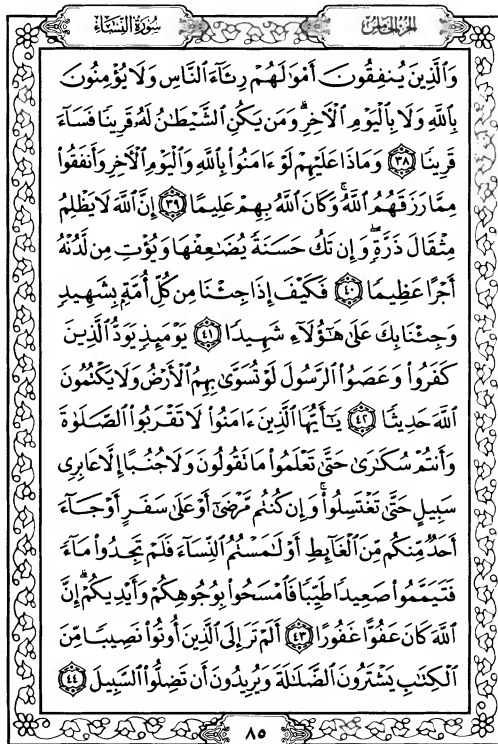 سُورَةُ النِّسَاءِ
الجزء الخامس
وَٱلَّذِينَ يُنفِقُونَ أَمْوَٰلَهُمْ رِئَآءَ ٱلنَّاسِ وَلَا يُؤْمِنُونَ
بِٱللَّهِ وَلَا بِٱلْيَوْمِ ٱلْءَاخِرِ ۗ وَمَن يَكُنِ ٱلشَّيْطَٰنُ لَهُۥ قَرِينًا فَسَآءَ
قَرِينًا ٣٨ وَمَاذَا عَلَيْهِمْ لَوْ ءَامَنُوا۟ بِٱللَّهِ وَٱلْيَوْمِ ٱلْءَاخِرِ وَأَنفَقُوا۟
مِمَّا رَزَقَهُمُ ٱللَّهُ ۚ وَكَانَ ٱللَّهُ بِهِمْ عَلِيمًا ٣٩ إِنَّ ٱللَّهَ لَا يَظْلِمُ
مِثْقَالَ ذَرَّةٍ ۖ وَإِن تَكُ حَسَنَةً يُضَٰعِفْهَا وَيُؤْتِ مِن لَّدُنْهُ
أَجْرًا عَظِيمًا ٤٠ فَكَيْفَ إِذَا جِئْنَا مِن كُلِّ أُمَّةٍۭ بِشَهِيدٍ
وَجِئْنَا بِكَ عَلَىٰ هَٰٓؤُلَآءِ شَهِيدًا ٤١ يَوْمَئِذٍ يَوَدُّ ٱلَّذِينَ
كَفَرُوا۟ وَعَصَوُا۟ ٱلرَّسُولَ لَوْ تُسَوَّىٰ بِهِمُ ٱلْأَرْضُ وَلَا يَكْتُمُونَ
ٱللَّهَ حَدِيثًا ٤٢ يَٰٓأَيُّهَا ٱلَّذِينَ ءَامَنُوا۟ لَا تَقْرَبُوا۟ ٱلصَّلَوٰةَ
وَأَنتُمْ سُكَٰرَىٰ حَتَّىٰ تَعْلَمُوا۟ مَا تَقُولُونَ وَلَا جُنُبًا إِلَّا عَابِرِى
سَبِيلٍ حَتَّىٰ تَغْتَسِلُوا۟ ۚ وَإِن كُنتُم مَّرْضَىٰٓ أَوْ عَلَىٰ سَفَرٍ أَوْ جَآءَ
أَحَدٌ مِّنكُم مِّنَ ٱلْغَآئِطِ أَوْ لَٰمَسْتُمُ ٱلنِّسَآءَ فَلَمْ تَجِدُوا۟ مَآءً
فَتَيَمَّمُوا۟ صَعِيدًا طَيِّبًا فَٱمْسَحُوا۟ بِوُجُوهِكُمْ وَأَيْدِيكُمْ ۗ إِنَّ
ٱللَّهَ كَانَ عَفُوًّا غَفُورًا ٤٣ أَلَمْ تَرَ إِلَى ٱلَّذِينَ أُوتُوا۟ نَصِيبًا مِّنَ
ٱلْكِتَٰبِ يَشْتَرُونَ ٱلضَّلَٰلَةَ وَيُرِيدُونَ أَن تَضِلُّوا۟ ٱلسَّبِيلَ ٤٤
٨٥